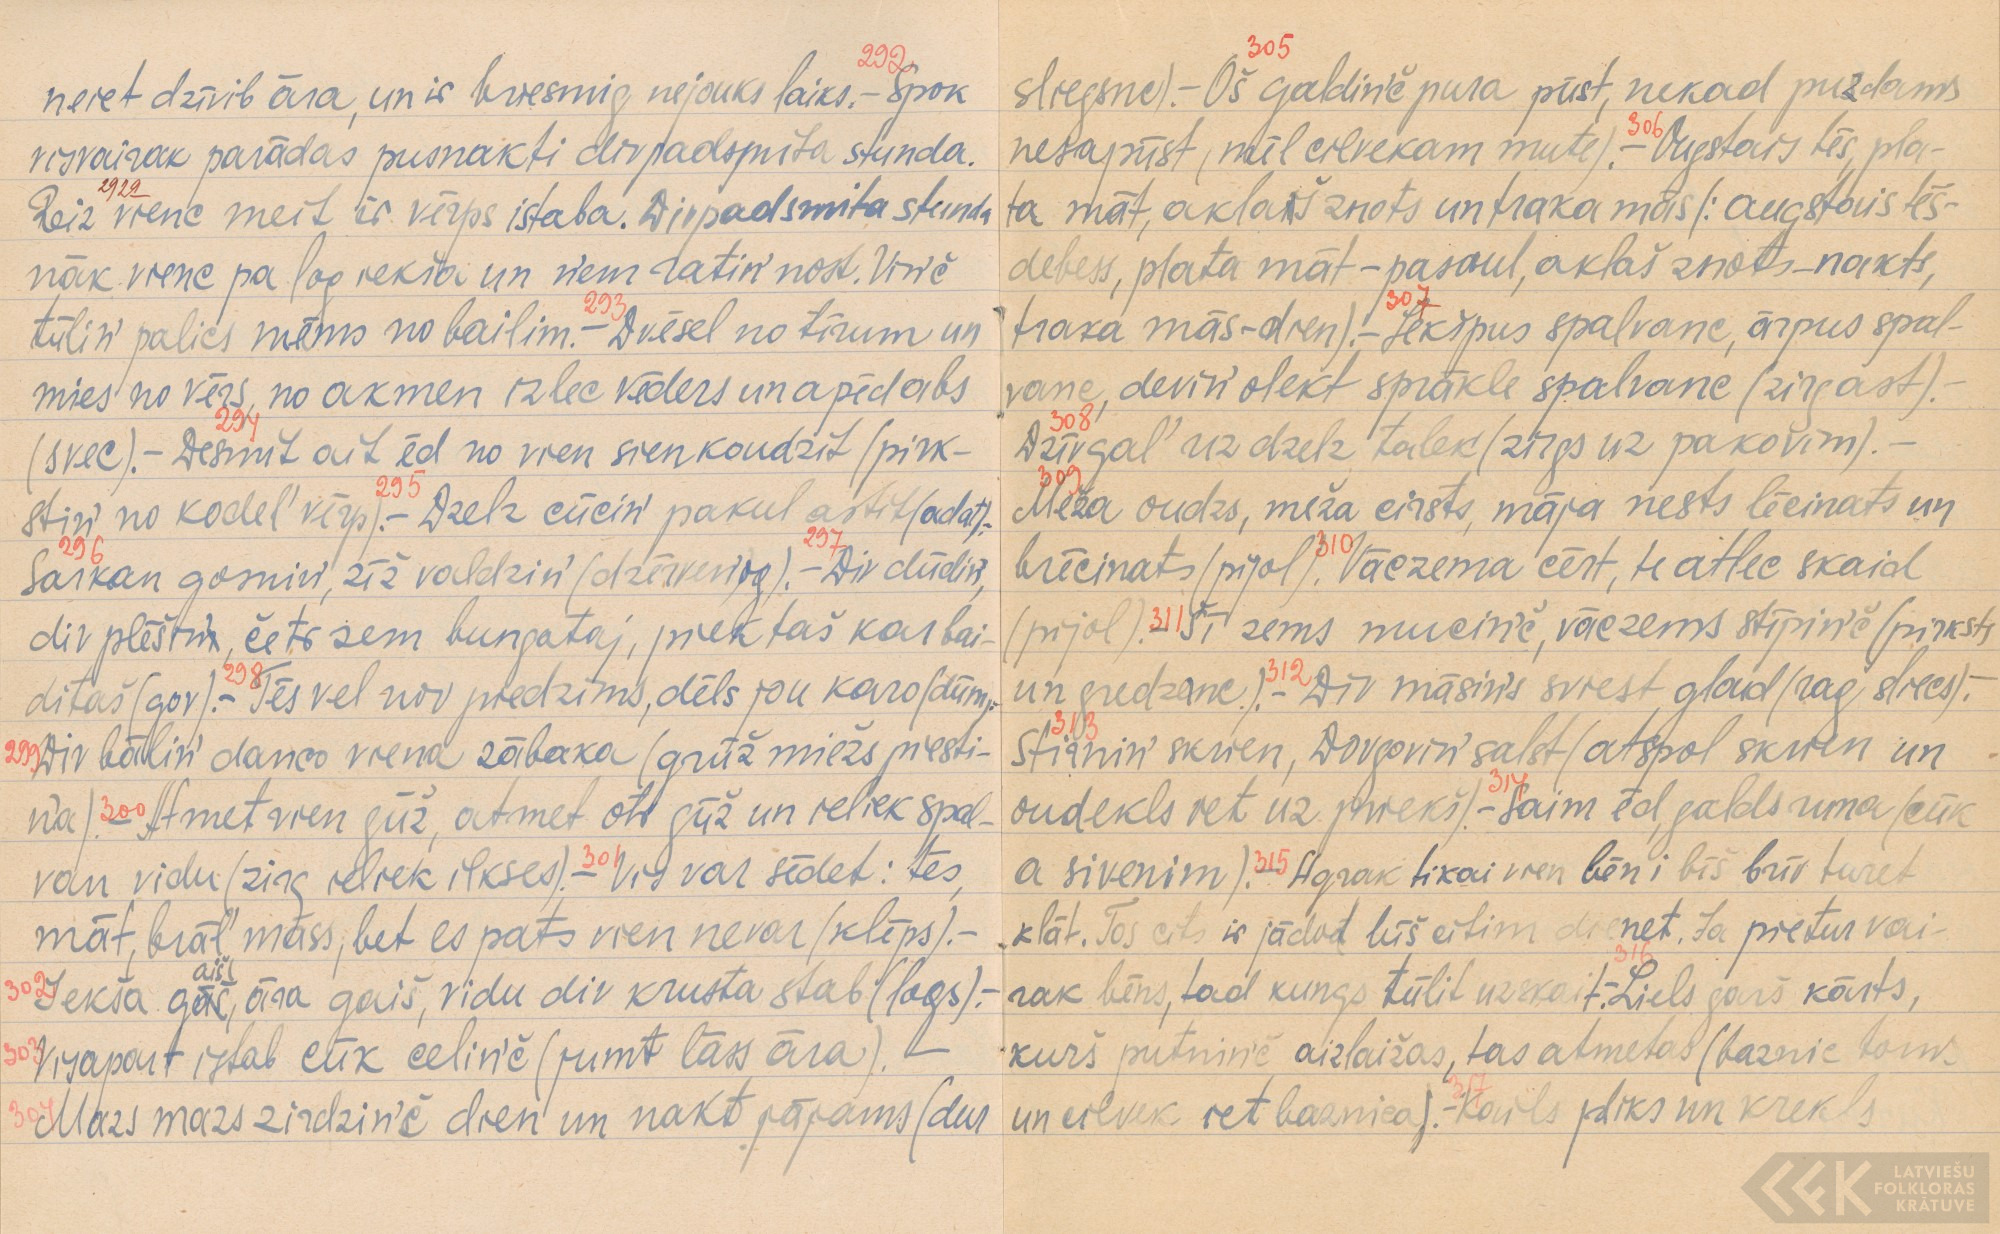 292
neiet dzīvib āra, un ir briesmig nejouks laiks. – Spok
visvairak parādas pusnakti divpadsmita stunda.
2929
Reiz vienc meit ir vērps istaba. Divpadsmita stunda
nāk vienc pa log iekša un ņem ratiņ nost. Viņč
293
tūliņ palics mēms no bailim. – Dvēsel no tīrum un
mies no vērs, no akmen izlec vēders un apēd abs
294
(svec). – Desmit ait ēd no vien sien koudzit (pirk-
295
stiņ no kodeļ vērp). – Dzelz cūciņ pakul astit (adat). –
296 297
Sarkan gosniņ, zīž valdziņ (dzērveņog). – Div dūdiņ,
div plēstiņ, četr zem bungataj, piektaš kar bai-
298
ditaš (gov). – Tēs vel nov piedzims, dēls jou karo (dūm). –
299 Div bāliņ danco viena zābaka (grūž miežs piesti-
300
ņa). – Atmet vien gūž, atmet otr gūž un ieliek spal-
301
van vidu (zirg ieliek ilkses). – Vis var sēdet: tēs,
māt, brāļ māss, bet es pats vien nevar (klēps). –
aišl
302 Iekša gaiš, āra gaiš, vidu div krusta stab (logs). –
303 Visapart istab cūk celiņč (jumt lāss āra). –
304 Mazs mazs zirdziņč dien un nakt jājams (dur
305
sliegsne). – Oš galdiņč pura pūst, nekad puzdams
306
nesapūst (mēl cilvekam mute). – Augstais tēs, pla-
ta māt, aklaiš znots un traka mās (: augstais tēs-
debess, plata māt – pasoul, aklaš znots – nakts,
307
traka mās – dien). – Iekšpus spalvanc, ārpus spal-
vanc, deviņ olekt sprākle spalvanc (zirg ast). –
308
Dzīvgaļ uz dzelz talek (zirgs uz pakovim). –
309
Meža oudzs, meža cirsts, māja nests lēcinats un
310
brēcinats (pijol). Vāczema cērt, te atlec skaid
311
(pijol). – Šī zems muciņč, vāczems stīpiņč (pirksts
312
un gredzenc). – Div māsiņs sviest glad (rag slices). –
313
Stirniņ skrien, Dovgoviņ salst (atspol skrien un
314
oudekls iet uz prieks). – Saim ēd, galds rūma (cūk
315
a sivenim). – Agrak tikai vien bēni bīš brīv turet
klāt. Tos cits ir jādod līš citim dienet. Ja pietur vai-
316
rak bēns, tad kungs tūlit uzskait. – Liels garš kārts,
kurš putniņč aizlaižas, tas atmetas (baznic torn
317
un cilvek iet baznica). – Kails pliks un krekls
LATVIEŠU
FOLKLORAS
KRĀTUVE